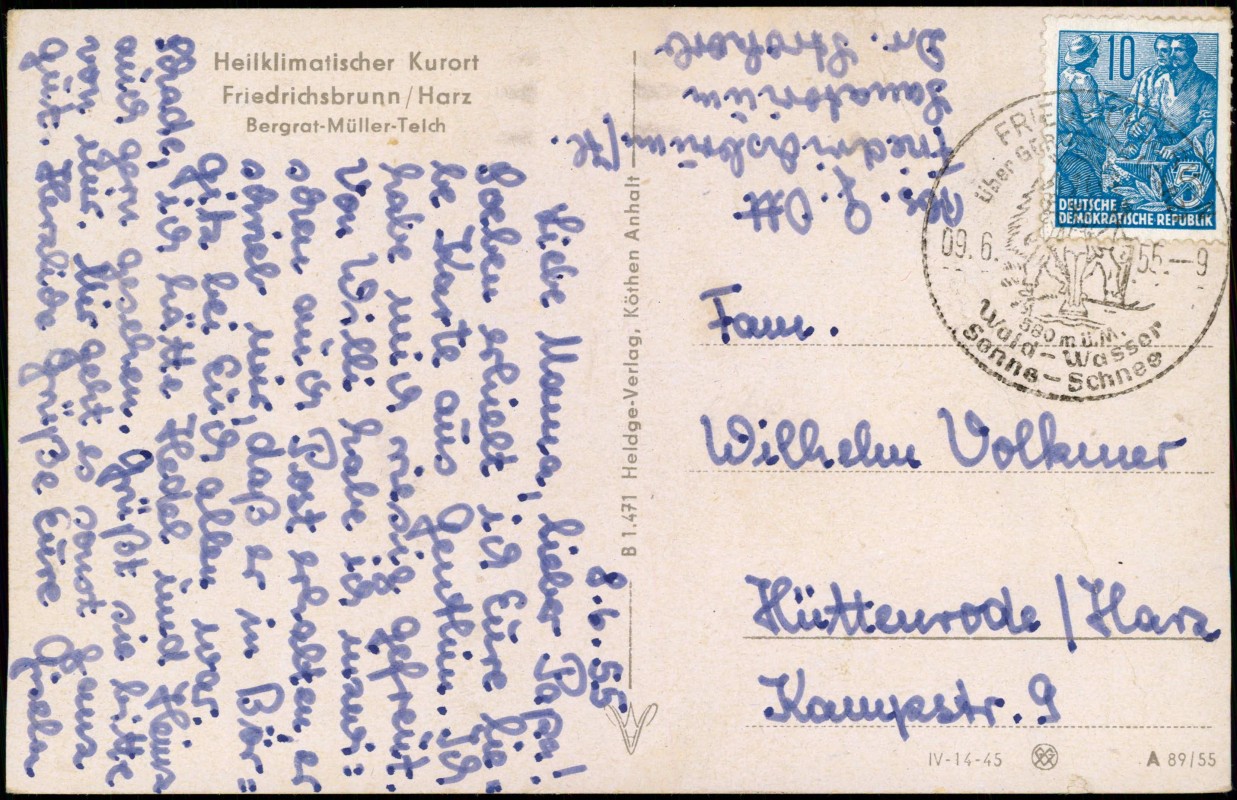 Heilklimatischer Kurort
Friedrichsbrunn/Harz
Bergrat-Müller-Teich
8.6.55.
Liebe Mama, lieber Papa!
Soeben erhielt ich Eure lie-
be Karte aus Genthin. Ich
habe mich riesig gefreut.
Von Willi habe ich nun
eben auch Post erhalten, er
schrieb mir, daß er in Bör-
gitz bei Euch allen war.
Schade, ich hätte Hedel und Heinz
auch gern gesehen. Grüßt sie bitte
von mir. Mir geht es sonst ganz
gut. Herzliche Grüße Eure Gisela
B 1.471 Heldge-Verlag, Köthen Anhalt
Abs. G. Ott
Friedrichsbrunn/H.
Sanatorium
Dr.
10
5
DEUTSCHE
DEMOKRATISCHE REPUBLIK
FRIE
über
09.6.55.-9
580 m ü.M.
Wald-Wasser
Sonne-Schnee
Fam.
Wilhelm Volkmer
Hüttenrode/Harz
Kampstr. 9
IV-14-45
A 89/55